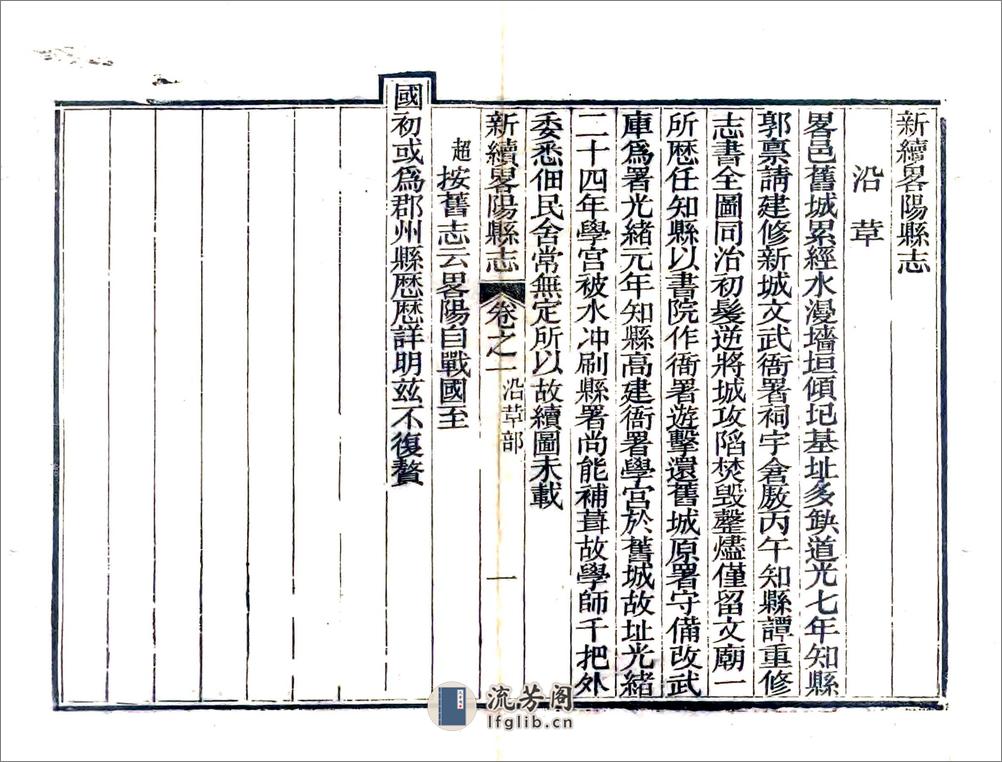 新續畧陽縣志
沿革
畧邑舊城累經水漫墻垣傾圮基址多缺道光七年知縣
郭禀請建修新城文武衙署祠宇倉廒丙午知縣譚重修
志書全圖同治初髮逆將城攻陷焚毀整燼僅留文廟一
所歷任知縣以書院作衙署遊擊還舊城原署守備改武
庫爲署光緒元年知縣高建衙署學宮於舊城故址光緒
二十四年學宮被水冲刷縣署尚能補葺故學師千把外
委悉佃民舍常無定所以故續圖未載
新續畧陽縣志 卷之一 沿革部 一
超按舊志云畧陽自戰國至
國初或爲郡州縣歷歷詳明玆不復贅
流芳阁
lfglib.cn